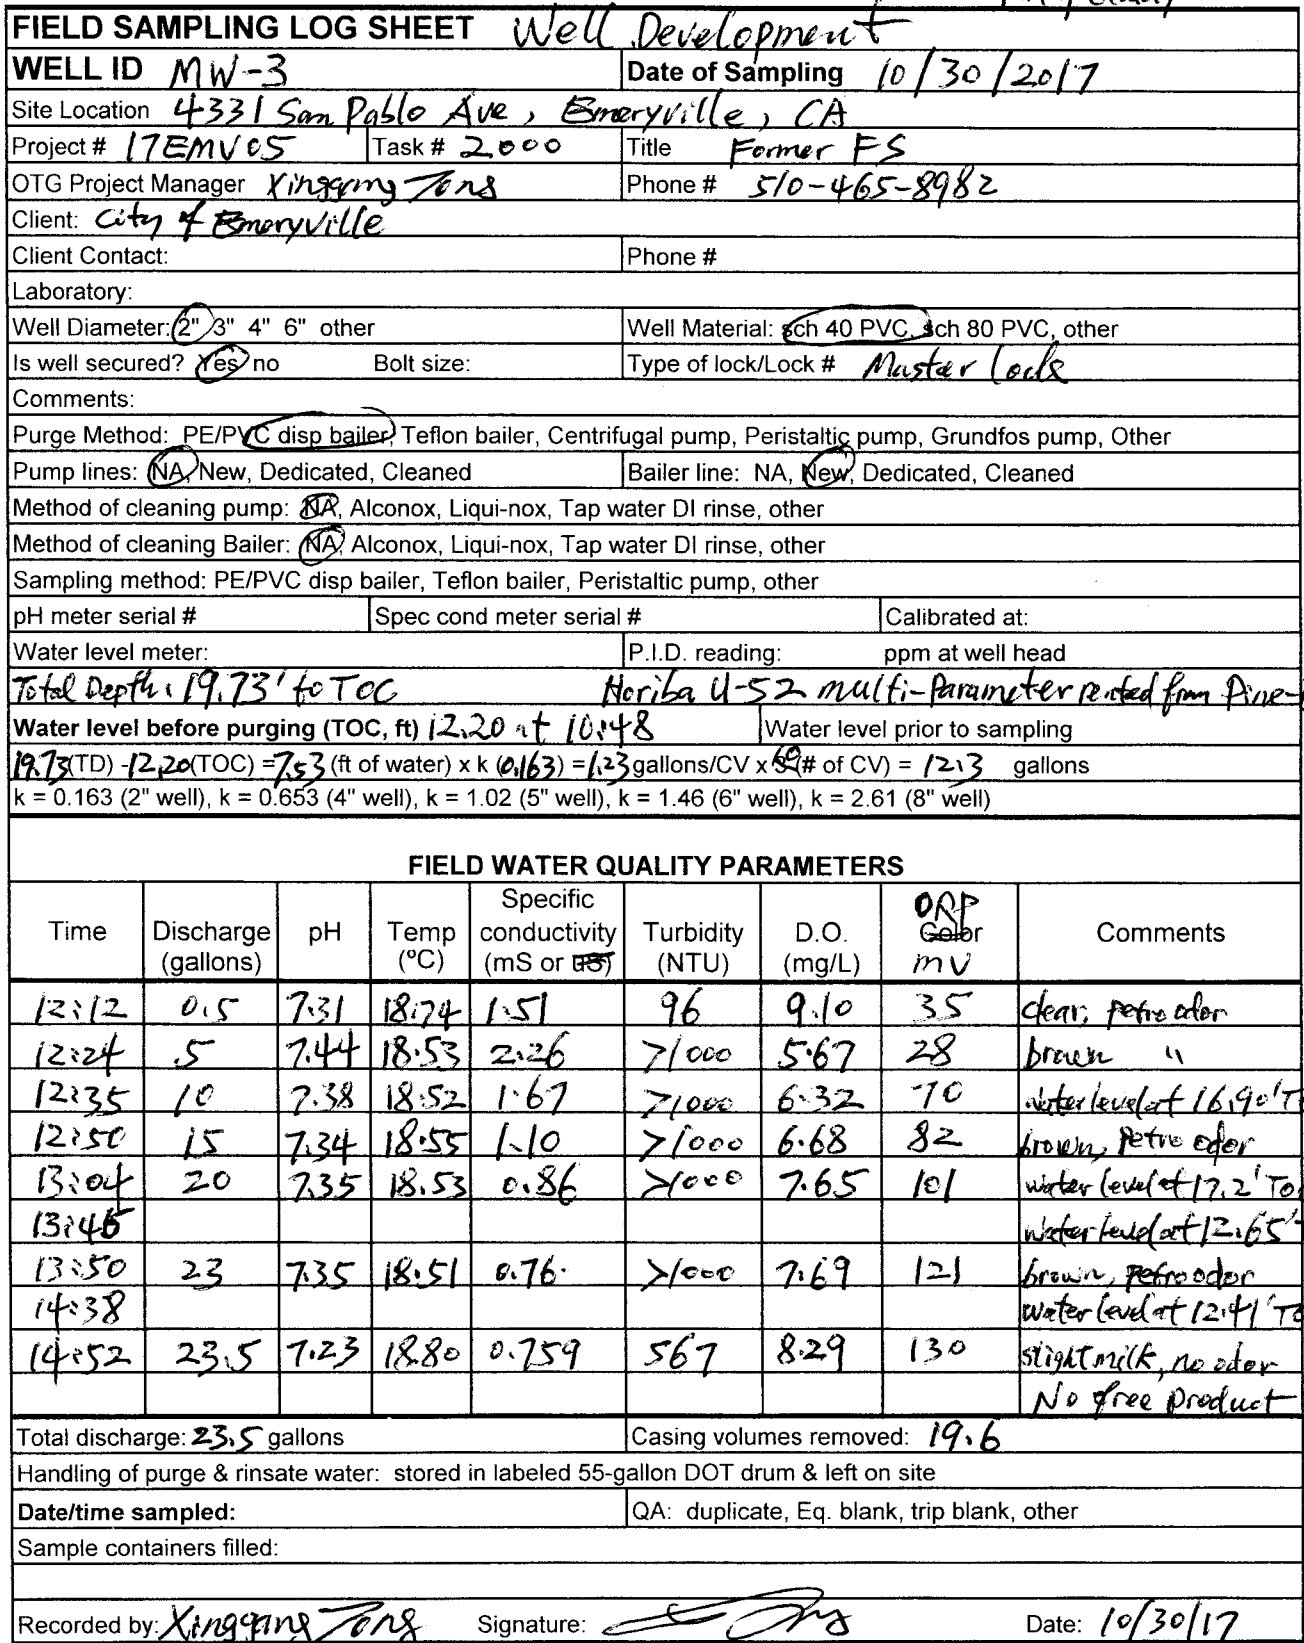 FIELD SAMPLING LOG SHEET Well Development
WELL ID MW-3 Date of Sampling 10/30/2017
Site Location 4331 San Pablo Ave, Emeryville, CA
Project # 17EMV05 Task # 2000 Title Former FS
OTG Project Manager Xinggang Tong Phone # 510-465-8982
Client: City of Emeryville
Client Contact: Phone #
Laboratory:
Well Diameter: 2" 3" 4" 6" other Well Material: sch 40 PVC, sch 80 PVC, other
Is well secured? Yes no Bolt size: Type of lock/Lock # Master Lock
Comments:
Purge Method: PE/PVC disp bailer, Teflon bailer, Centrifugal pump, Peristaltic pump, Grundfos pump, Other
Pump lines: NA, New, Dedicated, Cleaned Bailer line: NA, New, Dedicated, Cleaned
Method of cleaning pump: NA, Alconox, Liqui-nox, Tap water DI rinse, other
Method of cleaning Bailer: NA, Alconox, Liqui-nox, Tap water DI rinse, other
Sampling method: PE/PVC disp bailer, Teflon bailer, Peristaltic pump, other
pH meter serial # Spec cond meter serial # Calibrated at:
Water level meter: P.I.D. reading: ppm at well head
Total Depth: 19.73' to TOC Horiba U-52 multi-Parameter rented from Pine-
Water level before purging (TOC, ft) 12.20 at 10:48 Water level prior to sampling
19.73(TD) -12.20(TOC) =7.53 (ft of water) x k (0.163) =1.23 gallons/CV x (# of CV) = 12.3 gallons
k = 0.163 (2" well), k = 0.653 (4" well), k = 1.02 (5" well), k = 1.46 (6" well), k = 2.61 (8" well)
FIELD WATER QUALITY PARAMETERS
Time Discharge (gallons) pH Temp (ºC) Specific conductivity (mS or uS) Turbidity (NTU) D.O. (mg/L) ORP Color mV Comments
12:12 0.5 7.31 18.74 1.51 96 9.10 35 clear, petro odor
12:24 5 7.44 18.53 2.26 >1000 5.67 28 brown "
12:35 10 7.38 18.52 1.67 >1000 6.32 70 water level at 16.90' T
12:50 15 7.34 18.55 1.10 >1000 6.68 82 brown, petro odor
13:04 20 7.35 18.53 0.86 >1000 7.65 101 water level at 17.2' TO
13:46 water level at 12.65'
13:50 23 7.35 18.51 0.76 >1000 7.69 121 brown, petro odor
14:38 water level at 12.41' TO
14:52 23.5 7.23 18.80 0.759 567 8.29 130 slight milk, no odor
No free product
Total discharge: 23.5 gallons Casing volumes removed: 19.6
Handling of purge & rinsate water: stored in labeled 55-gallon DOT drum & left on site
Date/time sampled: QA: duplicate, Eq. blank, trip blank, other
Sample containers filled:
Recorded by: Xinggang Tong Signature: Date: 10/30/17